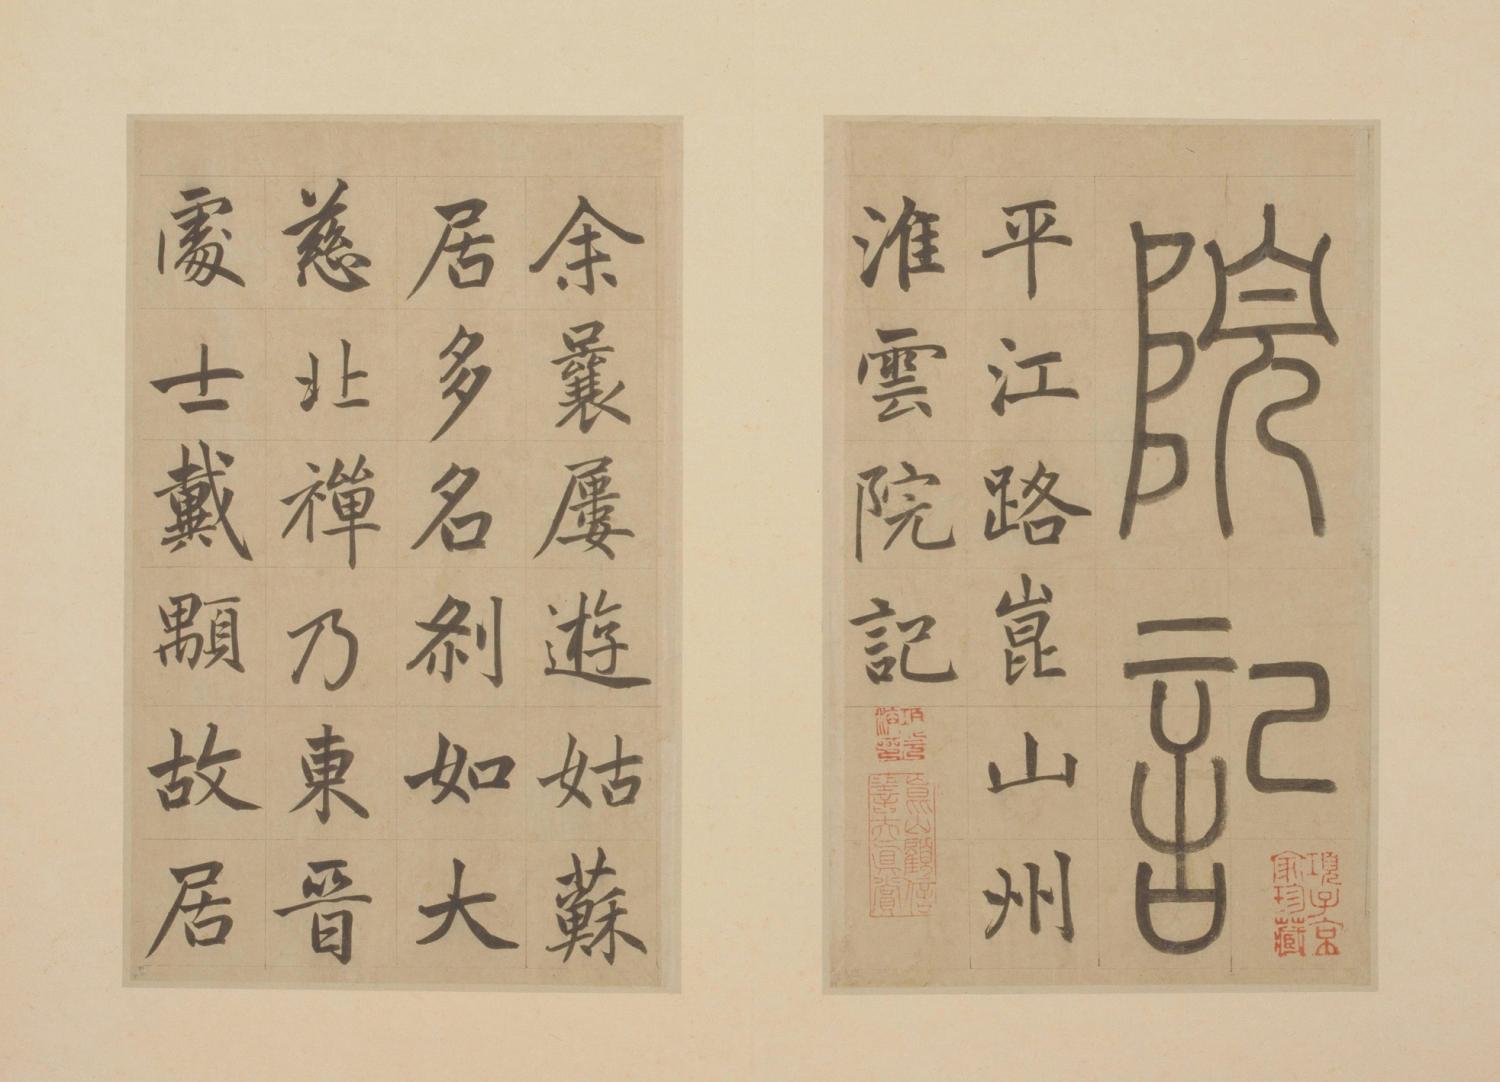 院記
平江路崑山州
淮雲院記
項子京家珍藏
余曩屢遊姑蘇
居多名剎如大
慈北禪乃東晉
處士戴顒故居